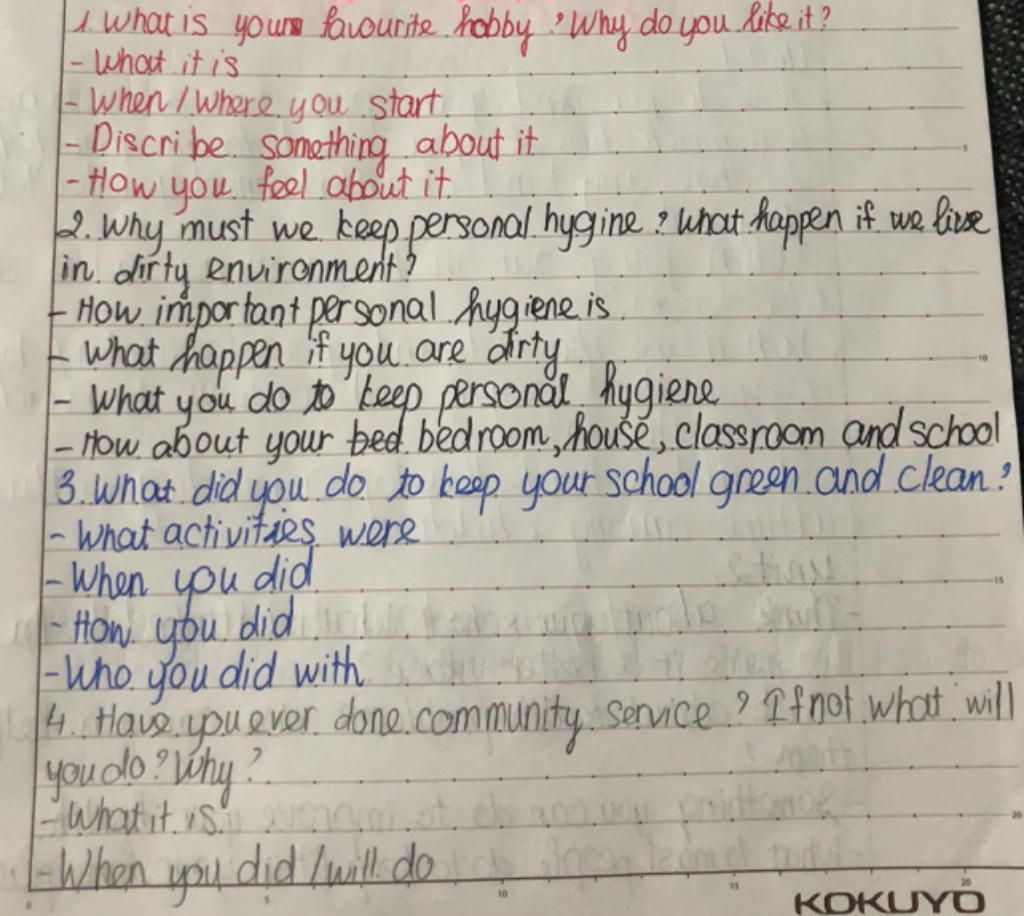 1. What is your favourite hobby? Why do you like it?
- What it is
- When / Where you start
- Discribe something about it
- How you feel about it
2. Why must we keep personal hygine? What happen if we live
in dirty environment?
- How important personal hygiene is
- What happen if you are dirty
- What you do to keep personal hygiene
- How about your bed bedroom, house, classroom and school
3. What did you do to keep your school green and clean?
- What activities were
- When you did
- How you did
- Who you did with
4. Have you ever done community service? If not what will
you do? Why?
- What it is
- When you did / will do
KOKUYO